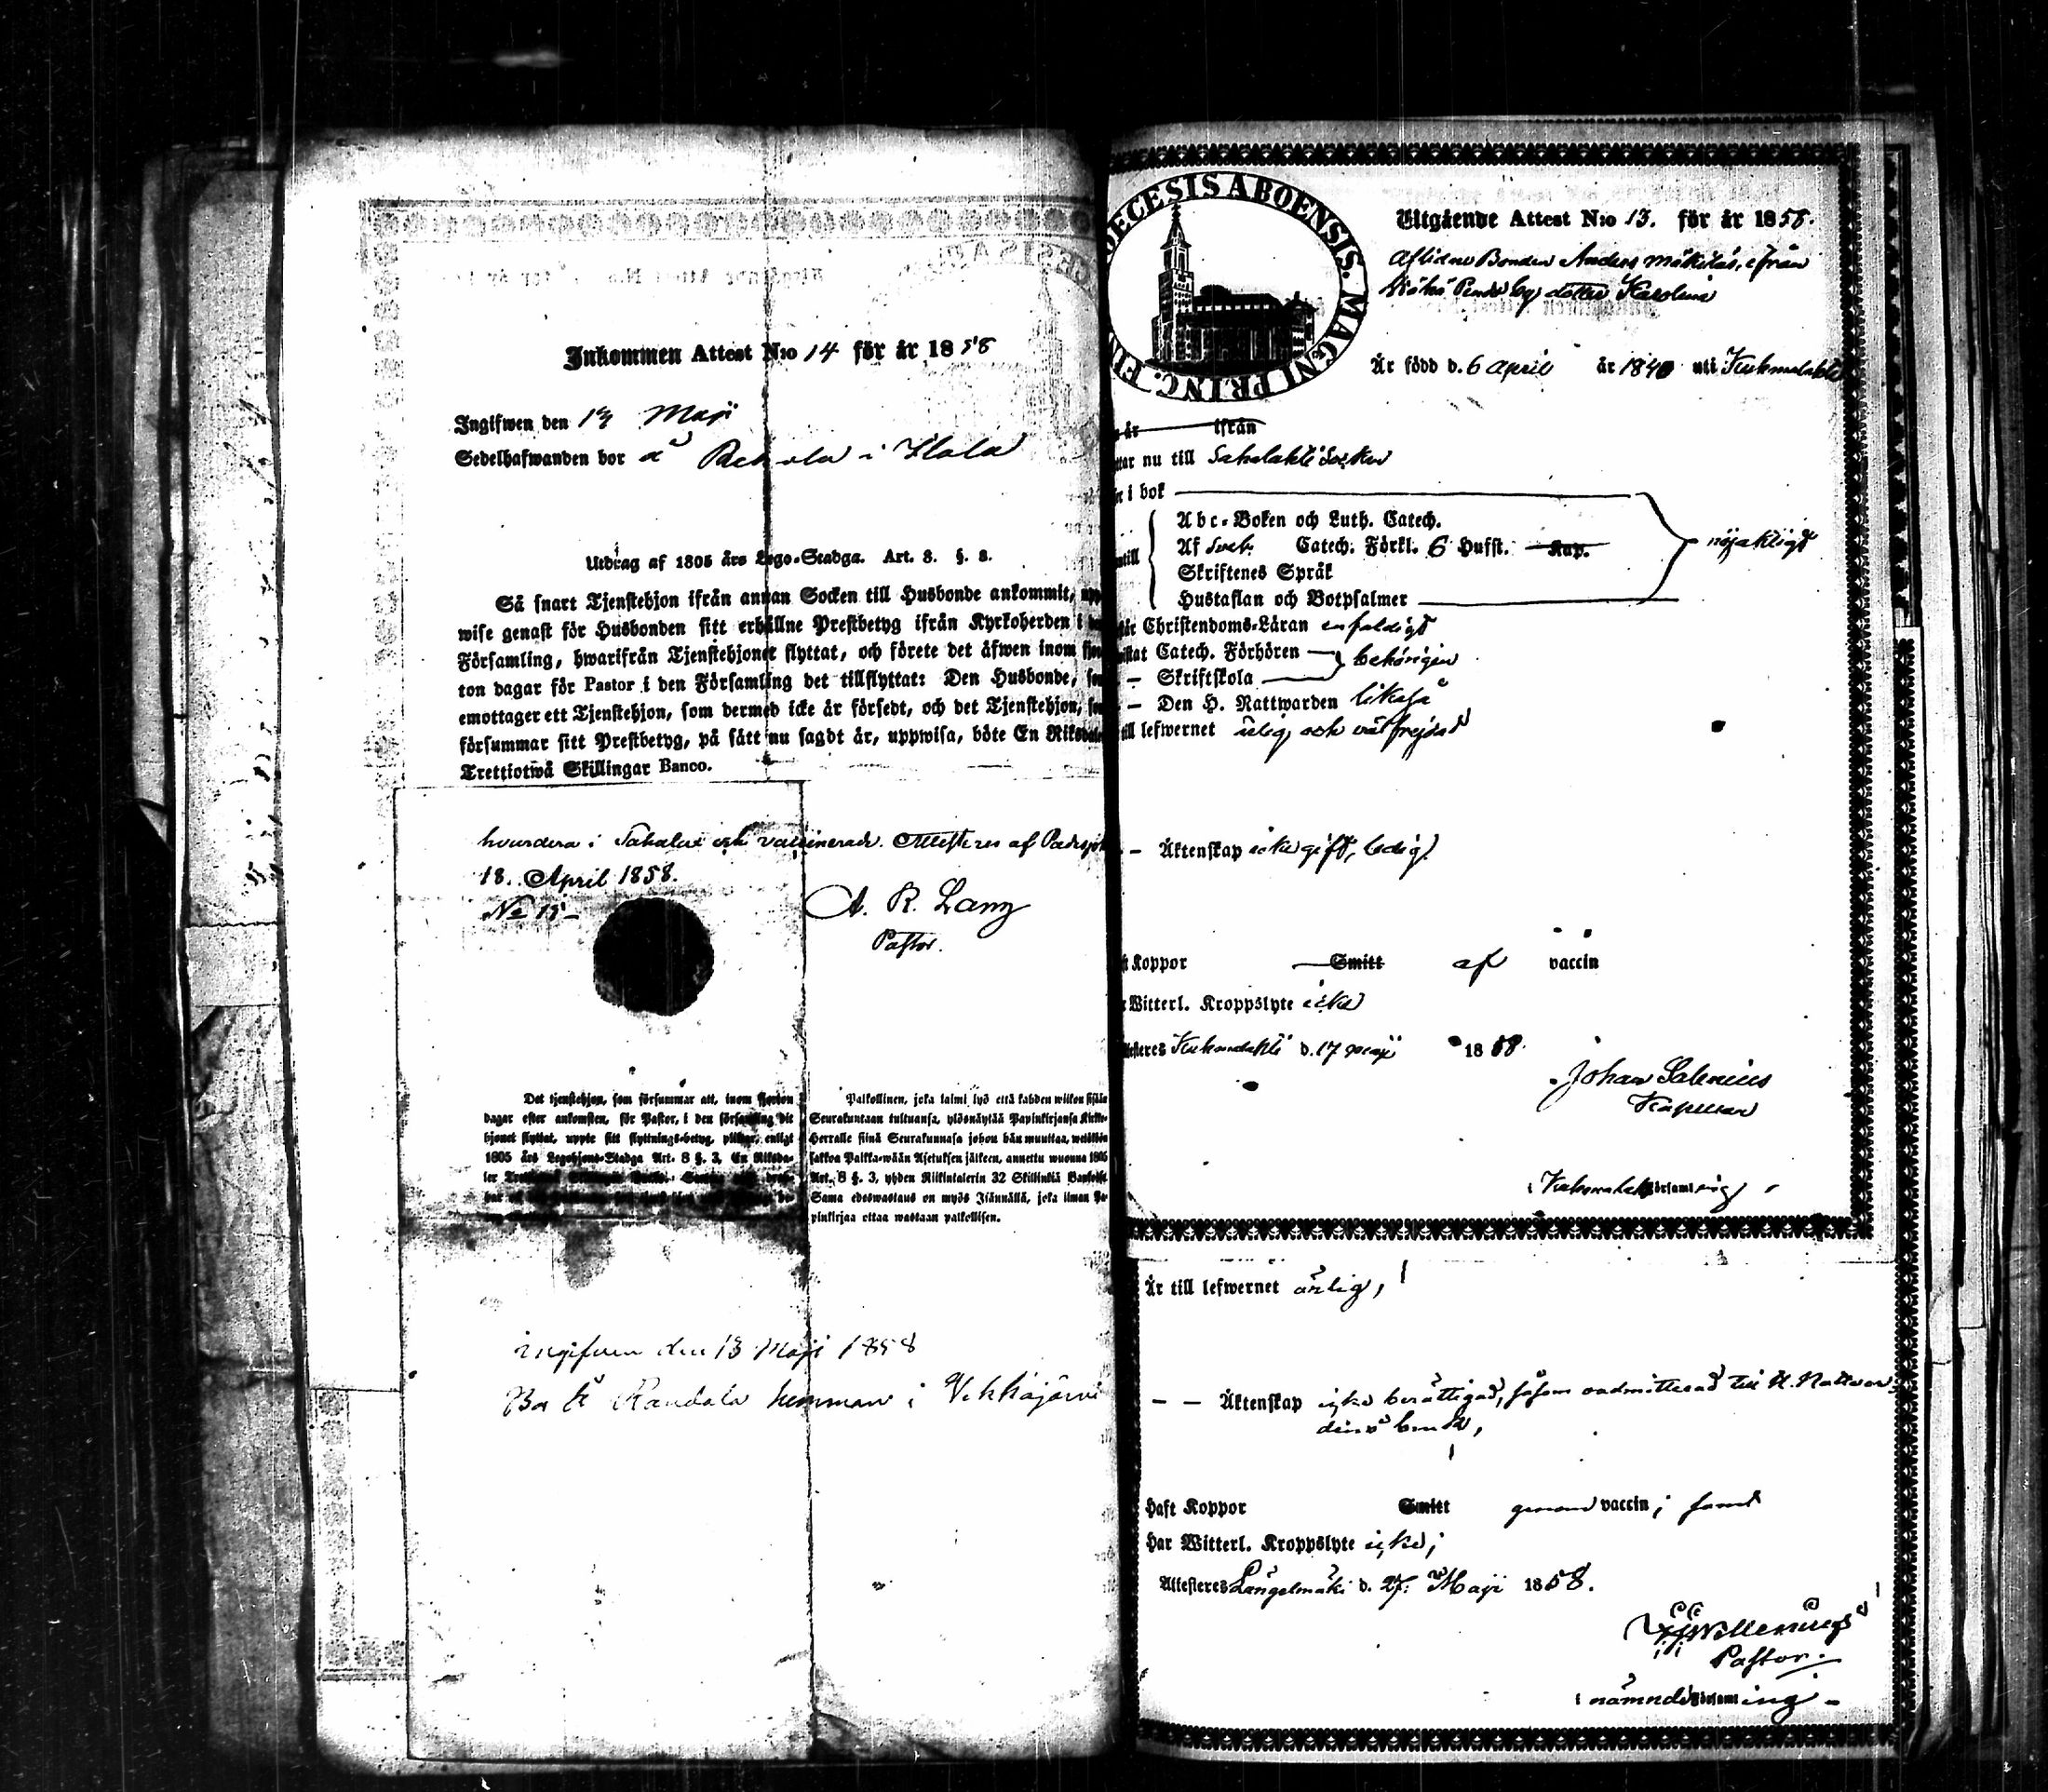 Inkommen Attest N:o 14 för år 1858
Ingifwen den 13 Maji
Sedelhafwanden bor å i
Utdrag af 1805 års Lego-Stadga. Art. 8. §. 8.
Så snart Tjenstehjon ifrån annan Socken till Husbonde ankommit, upp
wise genast för Husbonden sitt erhållne Prestbetyg ifrån Kyrkoherden i
Församling, hwarifrån Tjenstehjonet flyttat, och förete det äfwen inom fjor
ton dagar för Pastor i den Församling det tillflyttat: Den Husbonde, som
emottager ett Tjenstehjon, som dermed icke är försedt, och det Tjenstehjon, som
försummar sitt Prestbetyg, på sätt nu sagdt är, uppwisa, böte En Riksdaler
Trettiotwå Skillingar Banco.
i och vaccinerad. Attesteres af
18. April 1858.
No 15
A. R. Lang
Pastor.
Det tjenstehjon, som försummar att, inom fjorton
dagar efter ankomsten, för Pastor, i den församling dit
hjonet flyttat, uppte sitt flyttnings-betyg, pliktar, enligt
1805 års Legohjons-Stadga Art. 8 §. 3, En Riksda-
ler
Palkollinen, joka laimi lyö että kahden wiikon sisään
Seurakuntaan tultuansa, ylösnäytää Papinkirjansa Kirkko-
Herralle siinä Seurakunnasa johon hän muuttaa, wetäköön
sakkoa Palkka-wään Asetuksen jälkeen, annettu wuonna 1805
Art. 8 §. 3, yhden Riikintalerin 32 Skillinkiä Bankosa
Sama edeswastaus on myös Isännällä, joka ilman Pa-
pinkirjaa ottaa wastaan palkollisen.
ingifven den 13 Maji 1858
Bor å hemman i Vehkajärvi
DIOECESIS ABOENSIS. MAGNI PRINC. FIN
Utgående Attest N:o 13. för år 1858.
Aflidne Bonden Anders Mäkiläs, ifrån
by dotter Karolina
Är född d. 6 April år 1840 uti Kuhmalahti
år ifrån
ttar nu till Sahalahti Socken
i bok
Abc-Boken och Luth. Catech.
Af Sveb. Catech. Förkl. 6 Hufst. Kap.
Skriftenes Språk
Hustaflan och Botpsalmer
nöjaktigt
Christendoms-Läran enfaldigt
istat Catech. Förhören
— Skriftskola
behörigen
— Den H. Nattwarden likaså
till lefwernet ärlig och välfrejdad
— Äktenskap icke gift, ledig.
Koppor Smitt af vaccin
Witterl. Kroppslyte icke
Attesteres Kuhmalahti d. 17 Maji 1858.
Johan Salenius
Kapellan
i Kuhmalahti Församling
Är till lefwernet ärlig,
— — Äktenskap icke berättigad, såsom oadmitterad till H. Nattvar-
dens bruk,
Haft Koppor Smitt genom vaccin; samt
Har Witterl. Kroppslyte icke;
Attesteres Längelmäki d. 27. Maji 1858.
Pastor.
i nämnde Församling